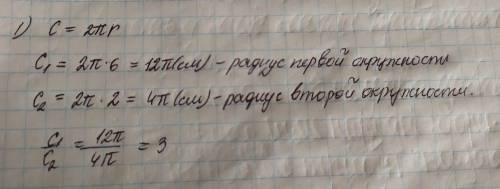 1) C = 2πr
C₁ = 2π·6 = 12π(см) - радиус первой окружности
C₂ = 2π·2 = 4π(см) - радиус второй окружности.
C₁/C₂ = 12π/4π = 3